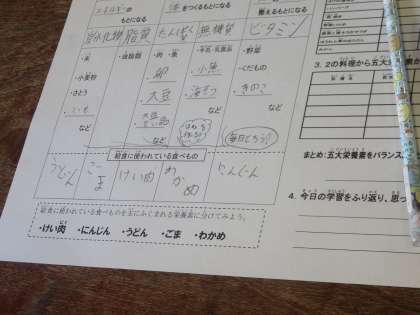 エネルギーの
もとになる
体をつくるもとになる
整えるもとになる
炭水化物 脂質 たんぱく 無機質 ビタミン
・米
・小麦粉
・さとう
・いも
など
・油脂類
など
・肉 ・魚
・卵
・大豆
・大豆せい品
など
・牛乳・乳製品
・小魚
・海そう
・野菜
・くだもの
・きのこ
など
毎日とろう!
給食に使われている食べもの
うどん ごま けい肉 わかめ にんじん
給食に使われている食べものを主にふくまれる栄養素に分けてみよう。
・けい肉 ・にんじん ・うどん ・ごま ・わかめ
3. 2の料理から五大栄養素
まとめ:五大栄養素をバランス
4. 今日の学習をふり返り、思っ